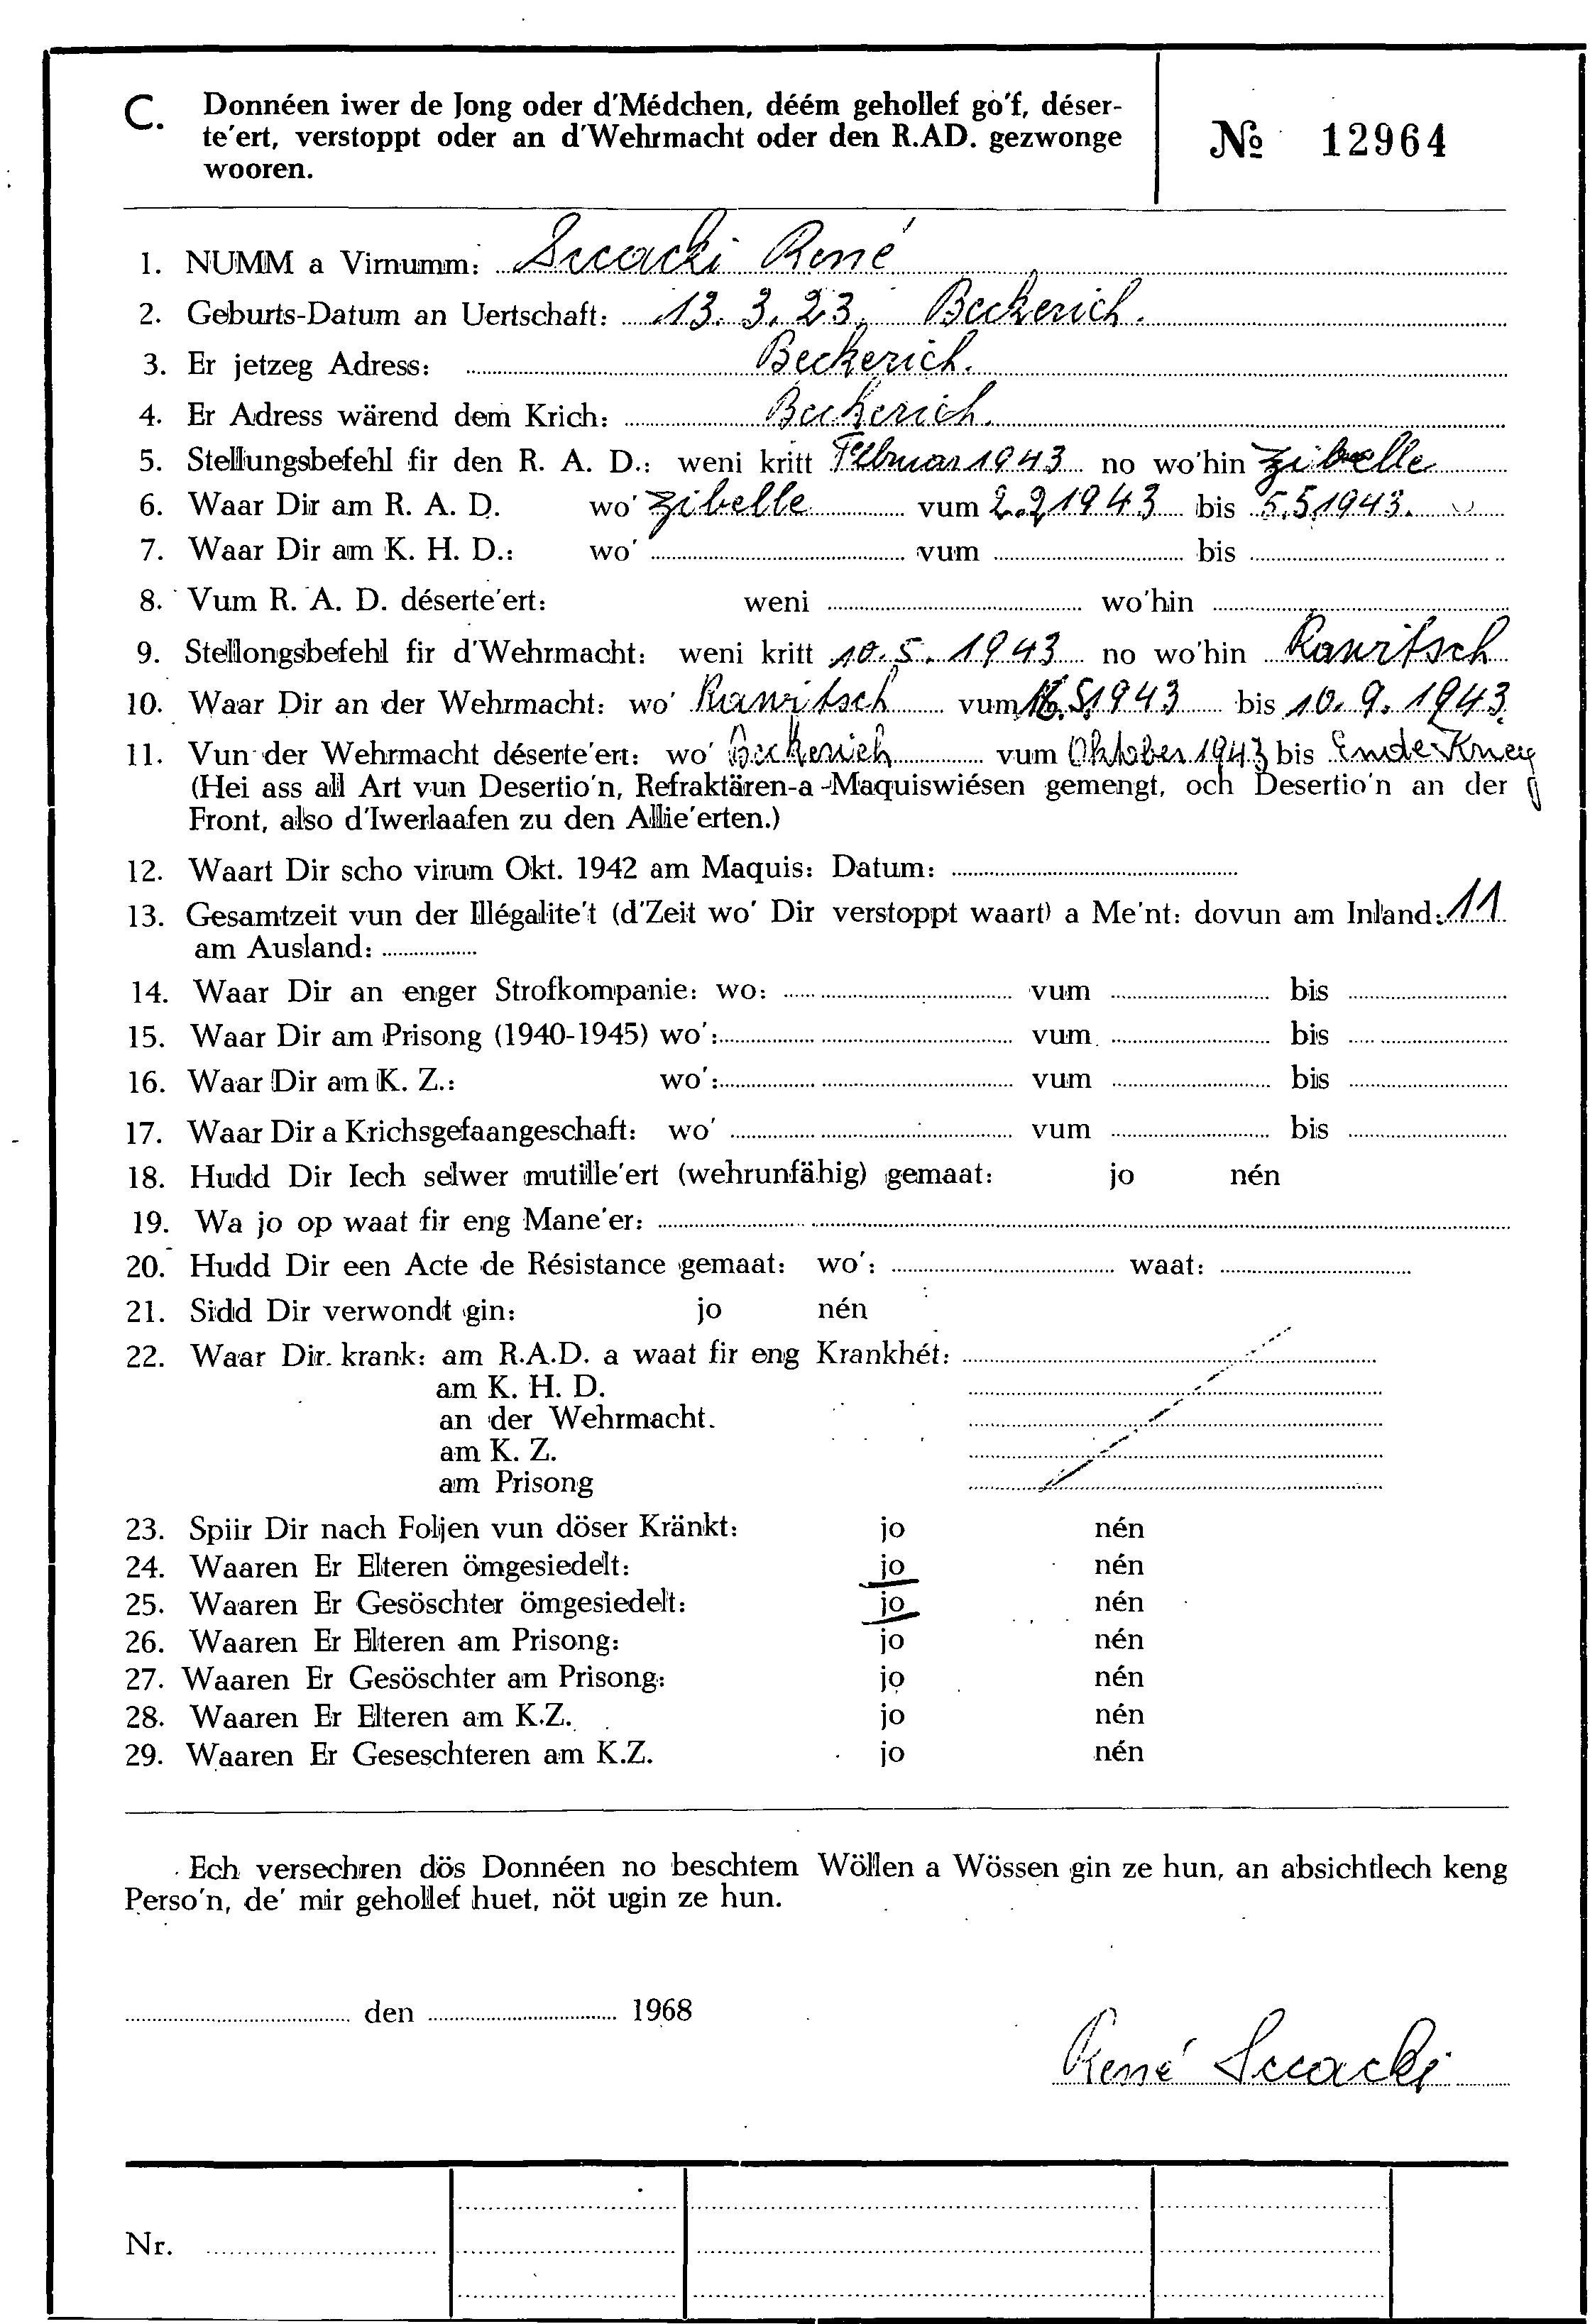 C. Donnéen iwer de Jong oder d'Médchen, déém gehollef go'f, déser-
te'ert, verstoppt oder an d'Wehrmacht oder den R.AD. gezwonge
wooren.
№ 12964
1. NUMM a Virnumm: Sccacki René
2. Geburts-Datum an Uertschaft: 13. 3. 23, Beckerich.
3. Er jetzeg Adress: Beckerich.
4. Er Adress wärend dem Krich: Beckerich.
5. Stellungsbefehl fir den R. A. D.: weni kritt Februar 1943 no wo'hin Zibelle
6. Waar Dir am R. A. D. wo' Zibelle vum 2.2 1943 bis 5.5.1943.
7. Waar Dir am K. H. D.: wo' vum bis
8. Vum R. A. D. déserte'ert: weni wo'hin
9. Stellongsbefehl fir d'Wehrmacht: weni kritt 10.5. 1943 no wo'hin Rawitsch
10. Waar Dir an der Wehrmacht: wo' Rawitsch vum 16.5.1943 bis 10. 9. 1943.
11. Vun der Wehrmacht déserte'ert: wo' Beckerich vum Oktober 1943 bis Ende Krieg
(Hei ass all Art vun Desertio'n, Refraktären-a-Maquiswiésen gemengt, och Desertio'n an der
Front, also d'Iwerlaafen zu den Allie'erten.)
12. Waart Dir scho virum Okt. 1942 am Maquis: Datum:
13. Gesamtzeit vun der Illégalite't (d'Zeit wo' Dir verstoppt waart) a Me'nt: dovun am Inland: 11
am Ausland:
14. Waar Dir an enger Strofkompanie: wo: vum bis
15. Waar Dir am Prisong (1940-1945) wo': vum bis
16. Waar Dir am K. Z.: wo': vum bis
17. Waar Dir a Krichsgefaangeschaft: wo' vum bis
18. Hudd Dir Iech selwer mutille'ert (wehrunfähig) gemaat: jo nén
19. Wa jo op waat fir eng Mane'er:
20. Hudd Dir een Acte de Résistance gemaat: wo': waat:
21. Sidd Dir verwondt gin: jo nén
22. Waar Dir krank: am R.A.D. a waat fir eng Krankhét:
am K. H. D.
an der Wehrmacht.
am K. Z.
am Prisong
23. Spiir Dir nach Foljen vun döser Kränkt: jo nén
24. Waaren Er Elteren ömgesiedelt: jo nén
25. Waaren Er Gesöschter ömgesiedelt: jo nén
26. Waaren Er Elteren am Prisong: jo nén
27. Waaren Er Gesöschter am Prisong: jo nén
28. Waaren Er Elteren am K.Z. jo nén
29. Waaren Er Geseschteren am K.Z. jo nén
Ech versechren dös Donnéen no beschtem Wöllen a Wössen gin ze hun, an absichtlech keng
Perso'n, de' mir gehollef huet, nöt ugin ze hun.
den 1968
René Sccacki
Nr.